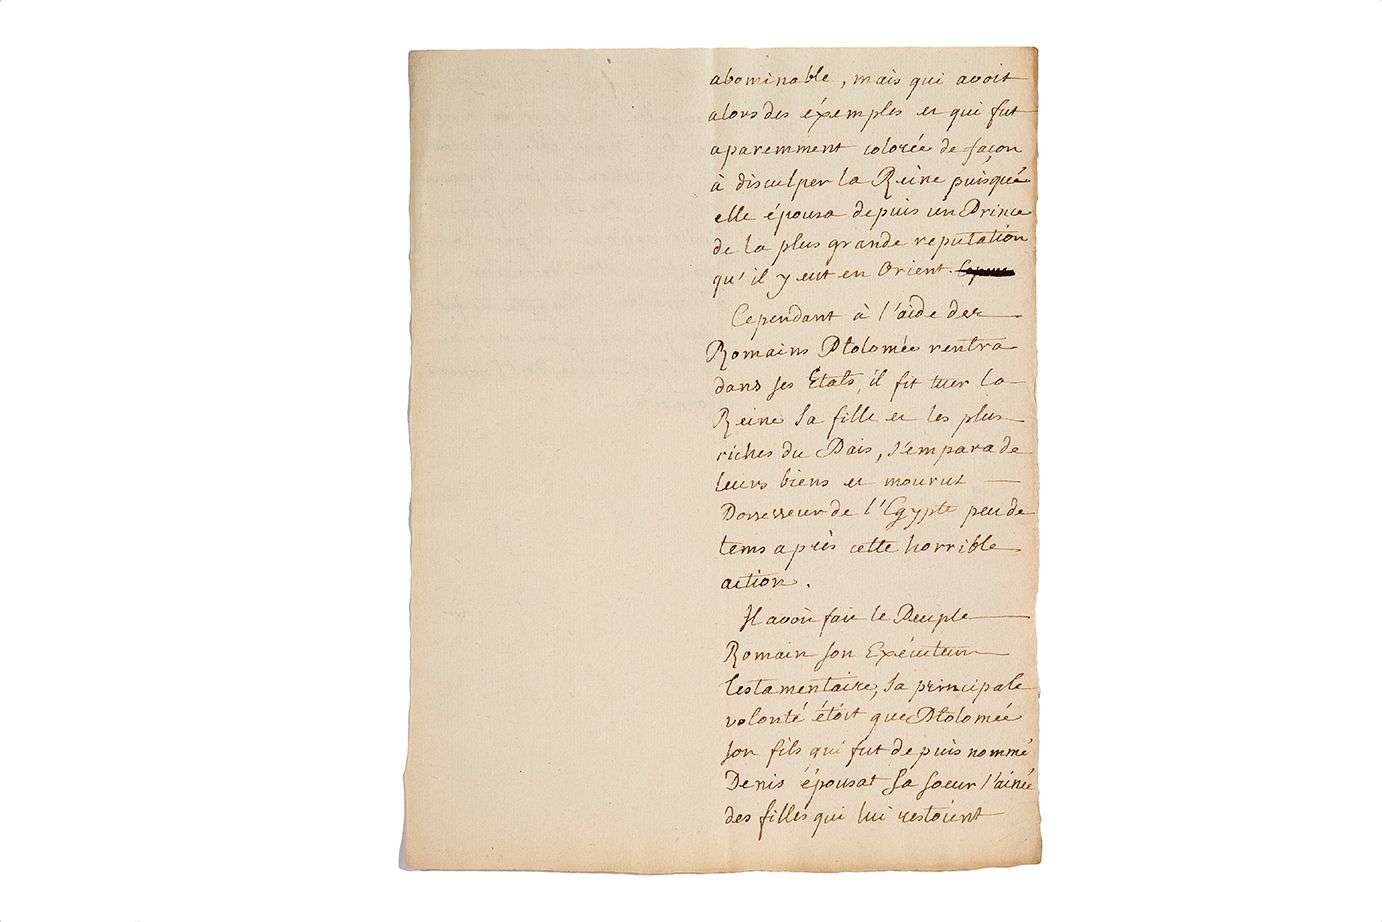 abominable, mais qui avoit
alors des éxemples et qui fut
aparemment colorée de façon
à disculper la Reine puisque
elle épousa depuis un Prince
de la plus grande reputation
qu'il y eut en Orient.
Cependant à l'aide des
Romains Ptolomée rentra
dans ses Etats, il fit tuer la
Reine sa fille et les plus
riches du Païs, s'empara de
leurs biens et mourut
Possesseur de l'Egypte peu de
tems après cette horrible
action.
Il avoit fait le Peuple
Romain son Exécuteur
testamentaire, sa principale
volonté étoit que Ptolomée
son fils qui fut depuis nommé
Denis épousat sa soeur l'ainée
des filles qui lui restoient